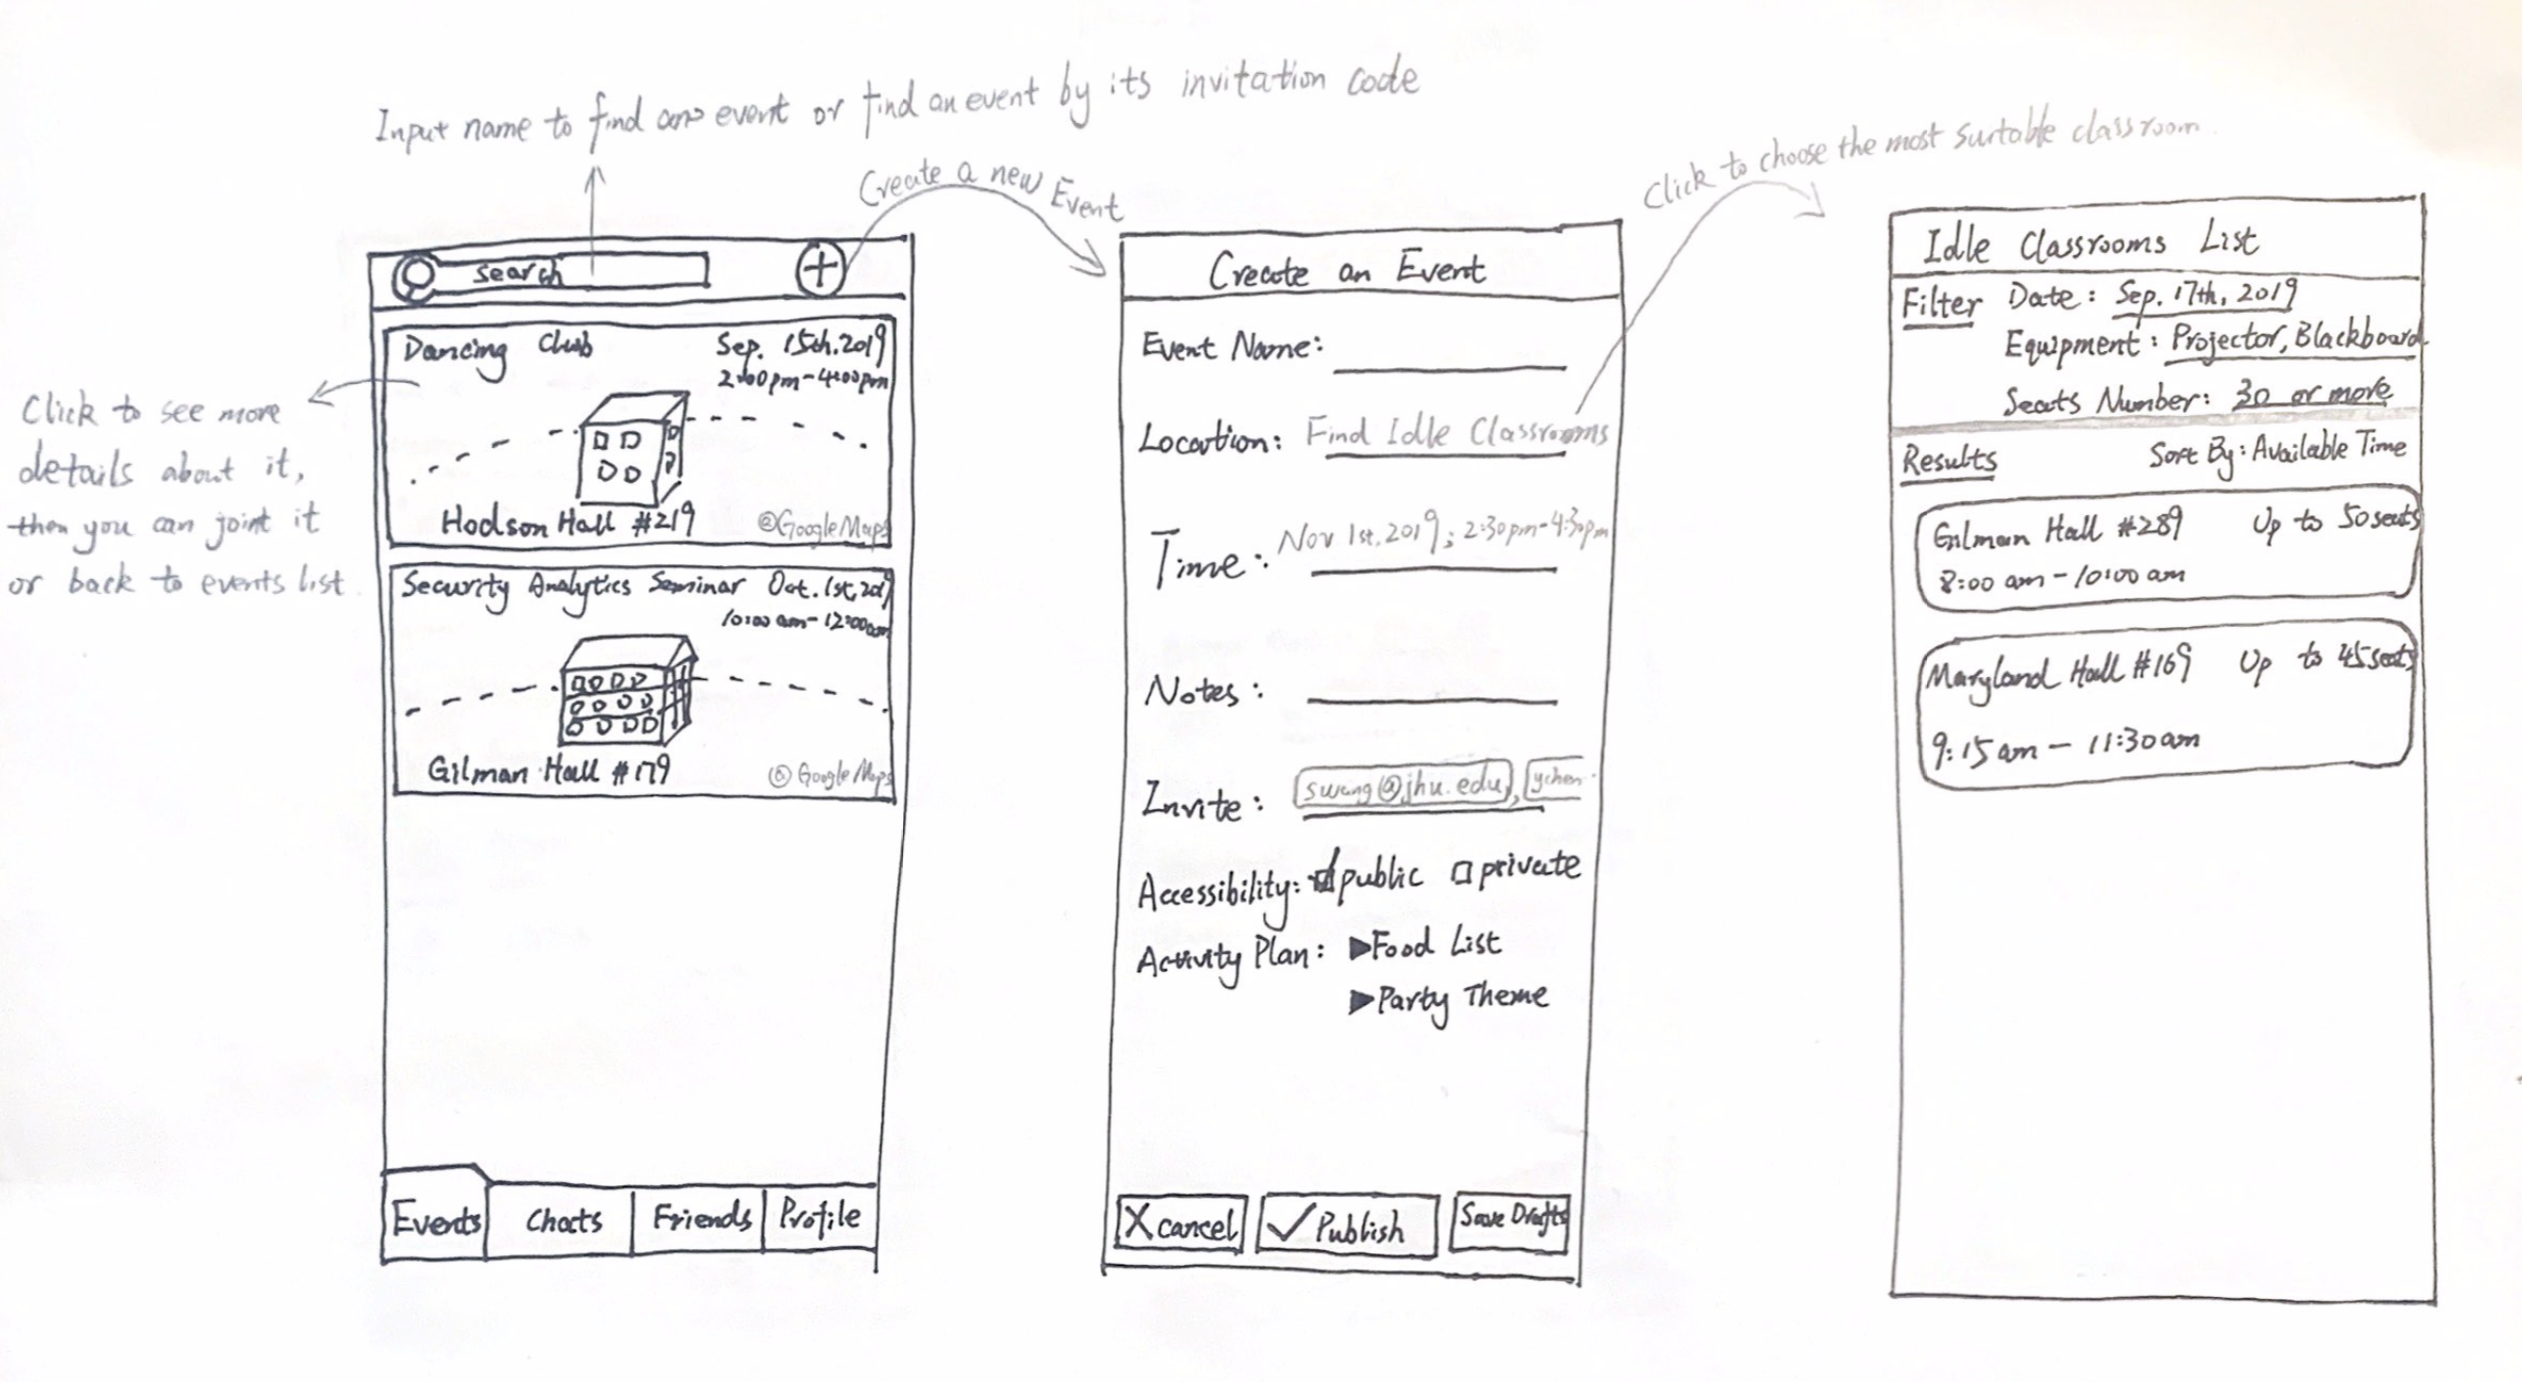 Input name to find an event or find an event by its invitation code
Create a new Event
Click to choose the most suitable classroom.
Click to see more
details about it,
then you can joint it
or back to events list.
search
+
Dancing Club Sep. 15th. 2019
2:00pm-4:00pm
Hodson Hall #219 @GoogleMaps
Security Analytics Seminar Oct. 1st, 2019
10:00 am-12:00am
Gilman Hall #179 @GoogleMaps
Events Chats Friends Profile
Create an Event
Event Name:
Location: Find Idle Classrooms
Time: Nov 1st, 2019; 2:30pm-4:30pm
Notes:
Invite: swang@jhu.edu, ychen
Accessibility: public private
Activity Plan: ▶Food List
▶Party Theme
X cancel ✓Publish Save Drafts
Idle Classrooms List
Filter Date: Sep. 17th, 2019
Equipment: Projector, Blackboard
Seats Number: 30 or more
Results Sort By: Available Time
Gilman Hall #289 Up to 50 seats
8:00 am-10:00 am
Maryland Hall #169 Up to 45 seats
9:15 am - 11:30 am